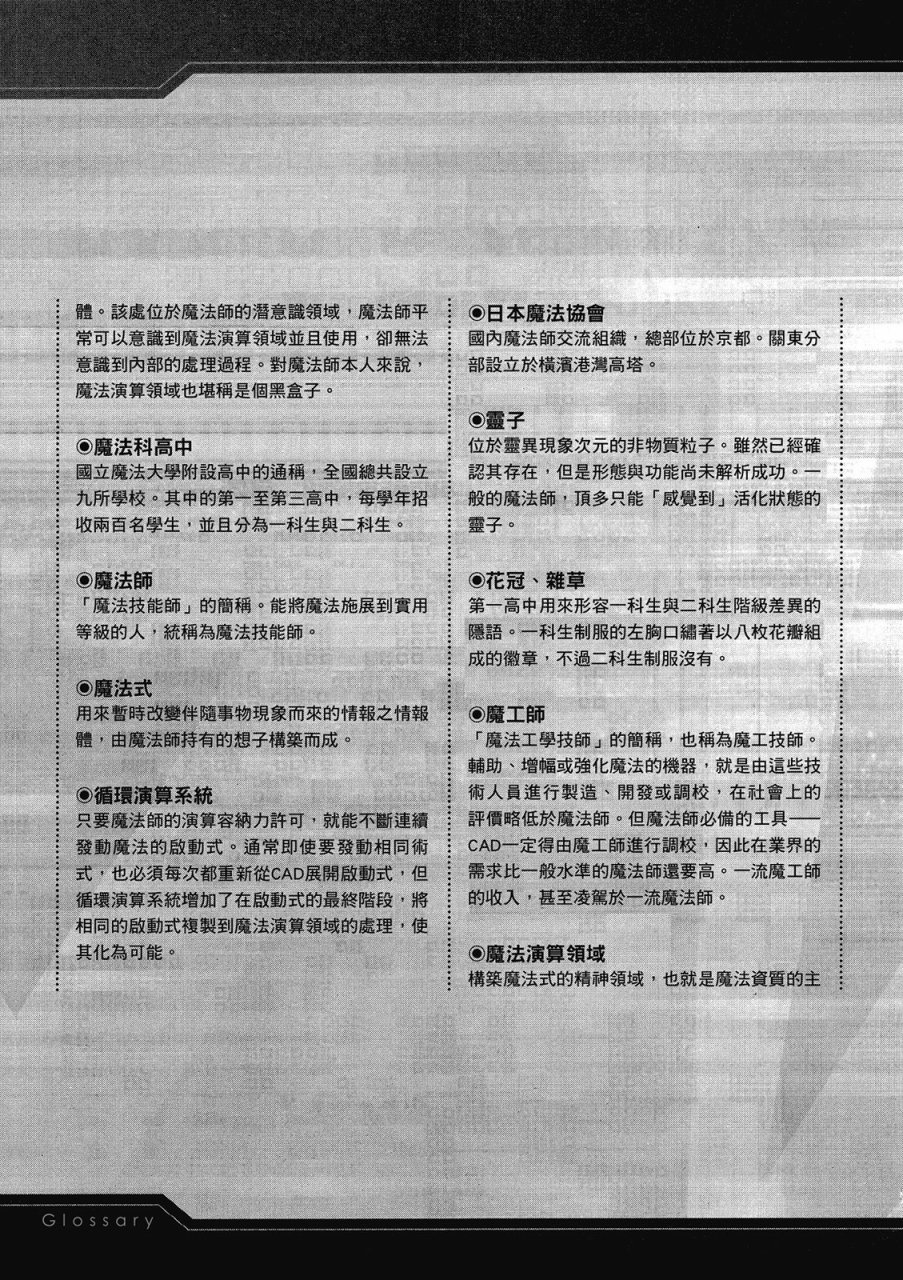 ◉日本魔法協會
國內魔法師交流組織，總部位於京都。關東分
部設立於橫濱港灣高塔。
◉靈子
位於靈異現象次元的非物質粒子。雖然已經確
認其存在，但是形態與功能尚未解析成功。一
般的魔法師，頂多只能「感覺到」活化狀態的
靈子。
◉花冠、雜草
第一高中用來形容一科生與二科生階級差異的
隱語。一科生制服的左胸口繡著以八枚花瓣組
成的徽章，不過二科生制服沒有。
◉魔工師
「魔法工學技師」的簡稱，也稱為魔工技師。
輔助、增幅或強化魔法的機器，就是由這些技
術人員進行製造、開發或調校，在社會上的
評價略低於魔法師。但魔法師必備的工具──
CAD一定得由魔工師進行調校，因此在業界的
需求比一般水準的魔法師還要高。一流魔工師
的收入，甚至凌駕於一流魔法師。
◉魔法演算領域
構築魔法式的精神領域，也就是魔法資質的主
體。該處位於魔法師的潛意識領域，魔法師平
常可以意識到魔法演算領域並且使用，卻無法
意識到內部的處理過程。對魔法師本人來說，
魔法演算領域也堪稱是個黑盒子。
◉魔法科高中
國立魔法大學附設高中的通稱，全國總共設立
九所學校。其中的第一至第三高中，每學年招
收兩百名學生，並且分為一科生與二科生。
◉魔法師
「魔法技能師」的簡稱。能將魔法施展到實用
等級的人，統稱為魔法技能師。
◉魔法式
用來暫時改變伴隨事物現象而來的情報之情報
體，由魔法師持有的想子構築而成。
◉循環演算系統
只要魔法師的演算容納力許可，就能不斷連續
發動魔法的啟動式。通常即使要發動相同術
式，也必須每次都重新從CAD展開啟動式，但
循環演算系統增加了在啟動式的最終階段，將
相同的啟動式複製到魔法演算領域的處理，使
其化為可能。
Glossary